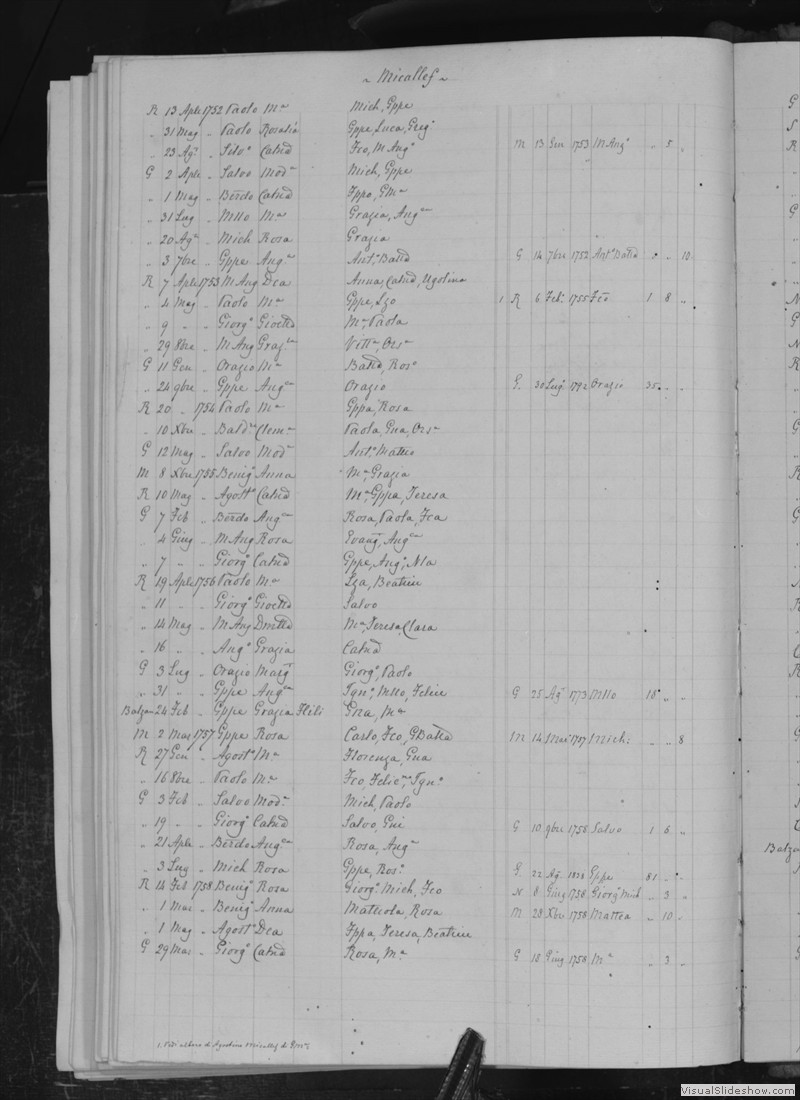 ~ Micallef ~
R 13 Aple 1752 Paolo Mª Mich, Gppe
„ 31 Mag „ Paolo Rosalia Gppe, Luca, Gregº
„ 23 Agº „ Silvº Catnd Fco, M Angº M 13 Gen 1753 M Angº „ 5 „
G 2 Aple „ Salvo Modª Mich, Gppe
„ 1 Mag „ Berdo Catnd Fppo, GMª
„ 31 Lug „ Mllo Mª Grazia, Angca
„ 20 Agº „ Mich Rosa Grazia
„ 3 7bre „ Gppe Angca Antº, Battd G 14 7bre 1752 Antº Battd „ „ 10
R 7 Aple 1753 M Ang Dea Anna, Catnd, Ugolina
„ 4 Mag „ Paolo Mª Gppe, Lzo 1 R 6 Feb 1755 Fco 1 8 „
„ 9 „ „ Giorgº Gioettd Mª, Paola
„ 29 8bre „ M Ang Grazia Vittª, Orsª
G 11 Gen „ Orazio Mª Battd, Rosº
„ 24 9bre „ Gppe Angca Orazio G 30 Lug 1792 Orazio 35 „ „
R 20 „ 1754 Paolo Mª Gppa, Rosa
„ 10 Xbre „ Baldª Clemª Paola, Gna, Orsª
G 12 Mag „ Salvo Modª Antº, Matteo
M 8 Xbre 1755 Benigº Anna Mª, Grazia
R 10 Mag „ Agostº Catnd Mª, Gppa, Teresa
G 7 Feb „ Berdo Angca Rosa, Paola, Fca
„ 4 Giug „ M Ang Rosa Evang, Angca
„ 7 „ „ Giorgº Catnd Gppe, Angº, Nla
R 19 Aple 1756 Paolo Mª Lza, Beatrice
„ 11 „ „ Giorgº Gioettd Salvo
„ 14 Mag „ M Ang Dmttd Mª, Teresa, Clara
„ 16 „ „ Angº Grazia Catnd
G 3 Lug „ Orazio Margª Giorgº, Paolo
„ 31 „ „ Gppe Angca Ignº, Mllo, Felice G 25 Agº 1773 Mllo 18 „ „
Balzan 24 Feb „ Gppe Grazia Fleli Gna, Mª
M 2 Mar 1757 Gppe Rosa Carlo, Fco, GBattd M 14 Mar 1757 Mich: „ „ 8
R 27 Gen „ Agostº Mª Florenza, Gna
„ 16 8bre „ Paolo Mª Fco, Felicª, Ignº
G 3 Feb „ Salvo Modª Mich, Paolo
„ 19 „ „ Giorgº Catnd Salvo, Gni G 10 9bre 1758 Salvo 1 6 „
„ 21 Aple „ Berdo Angca Rosa, Angª
„ 3 Lug „ Mich Rosa Gppe, Rosº G 22 Ag. 1838 Gppe 81 „ „
R 14 Feb 1758 Benigº Rosa Giorgº, Mich, Fco N 8 Giug 1758 Giorgº Mich „ 3 „
„ 1 Mar „ Benigº Anna Matteola, Rosa M 28 Xbre 1758 Mattea „ 10 „
„ 1 Mag „ Agostº Dea Fppa, Teresa, Beatrice
G 29 Mar „ Giorgº Catnd Rosa, Mª G 18 Giug 1758 Mª „ 3 „
1. Vedi albero di Agostino Micallef di GMª
Balza
VisualSlideshow.com